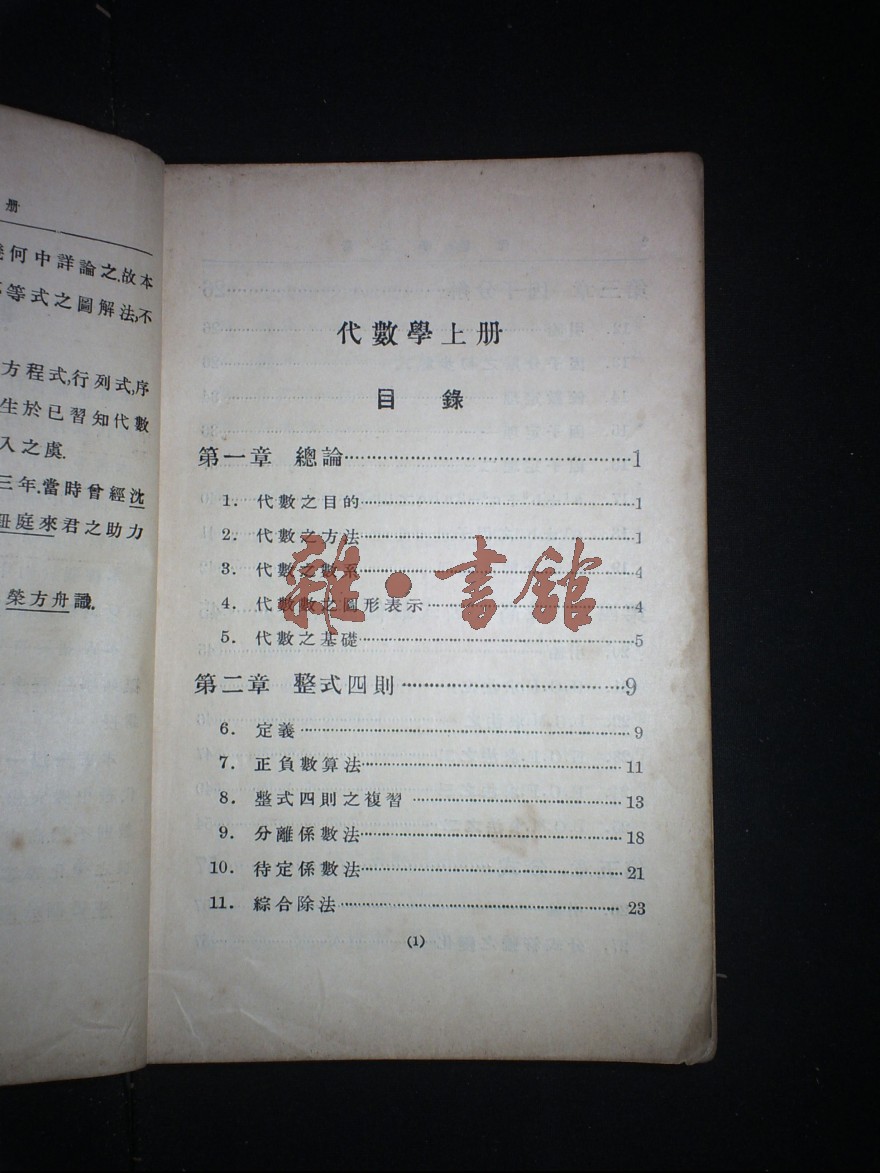 册
幾何中詳論之.故本
等式之圖解法,不
方程式,行列式,序
生於已習知代數
入之虞.
三年.當時曾經沈
鈕庭來君之助力
榮方舟識.
代數學上册
目 錄
第一章 總論……1
1. 代數之目的……1
2. 代數之方法……1
3. 代數之數系……4
4. 代數數之圖形表示……4
5. 代數之基礎……5
第二章 整式四則……9
6. 定義……9
7. 正負數算法……11
8. 整式四則之複習……13
9. 分離係數法……18
10. 待定係數法……21
11. 綜合除法……23
(1)
雜·書館